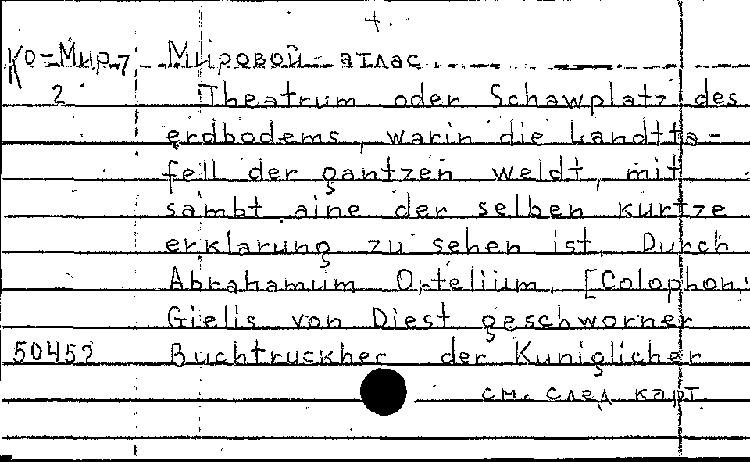 Ко-Мир, Мировой атлас
2 Theatrum oder Schawplatz des
erdbodems, warin die Landtta-
fell der gantzen weldt, mit
sambt aine der selben kurtze
erklarung zu sehen ist. Durch
Abrahamum Ortelium. [Colophon:
Gielis von Diest geschworner
50452 Buchtruckher der Kuniglicher
см. след. карт.